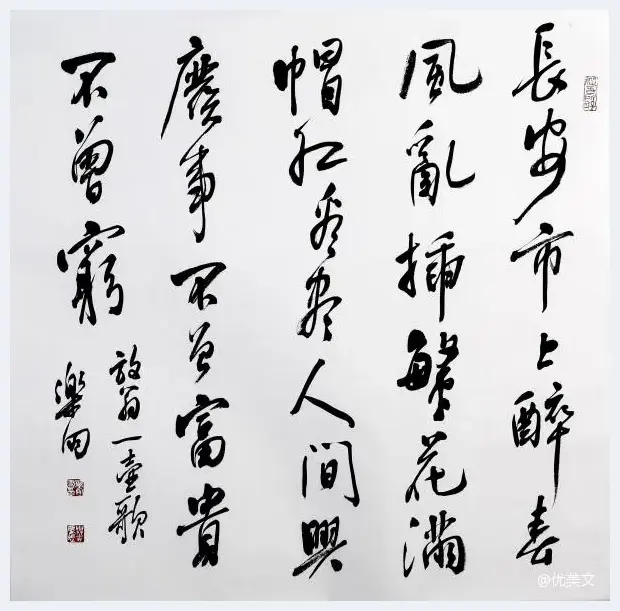 長安市上醉春
風亂插繁花滿
帽紅看盡人間興
廢事不曾富貴
不曾窮
放翁一壺歌
樂
@优美文